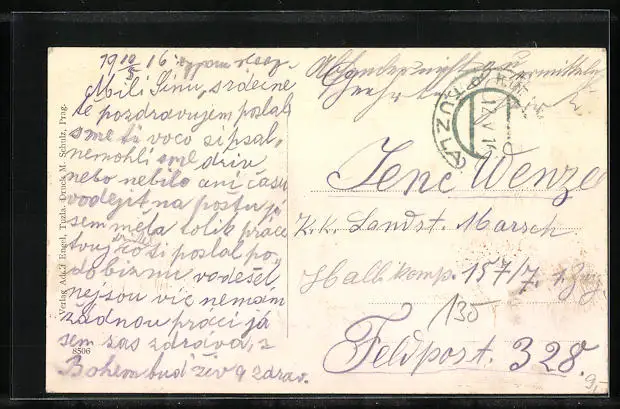 19 10/5 16.
Milí Sinu, srdečne
tě pozdravujem poslali
sme ti voco si psal,
nemohli sme dřiv
nebo nebilo ani času
vodejít na postu já
sem měla tolik práce
tvuj si poslal po-
dobiznu vodešel
nejsou víc nemám
žádnou práci já
sem zas zdráva, z
Bohem buď živ a zdrav.
Verlag Adolf Engel, Tuzla. Druck M. Schulz, Prag.
8506
Absender nicht zu ermitteln
TUZLA
12.V.16
Jenc Wenzel
K.k. Landst. Marsch
Halbkomp. 157/7. 1. Zug
135
Feldpost. 328.